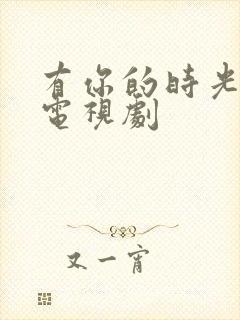 有你的时光
電視劇
又一宵